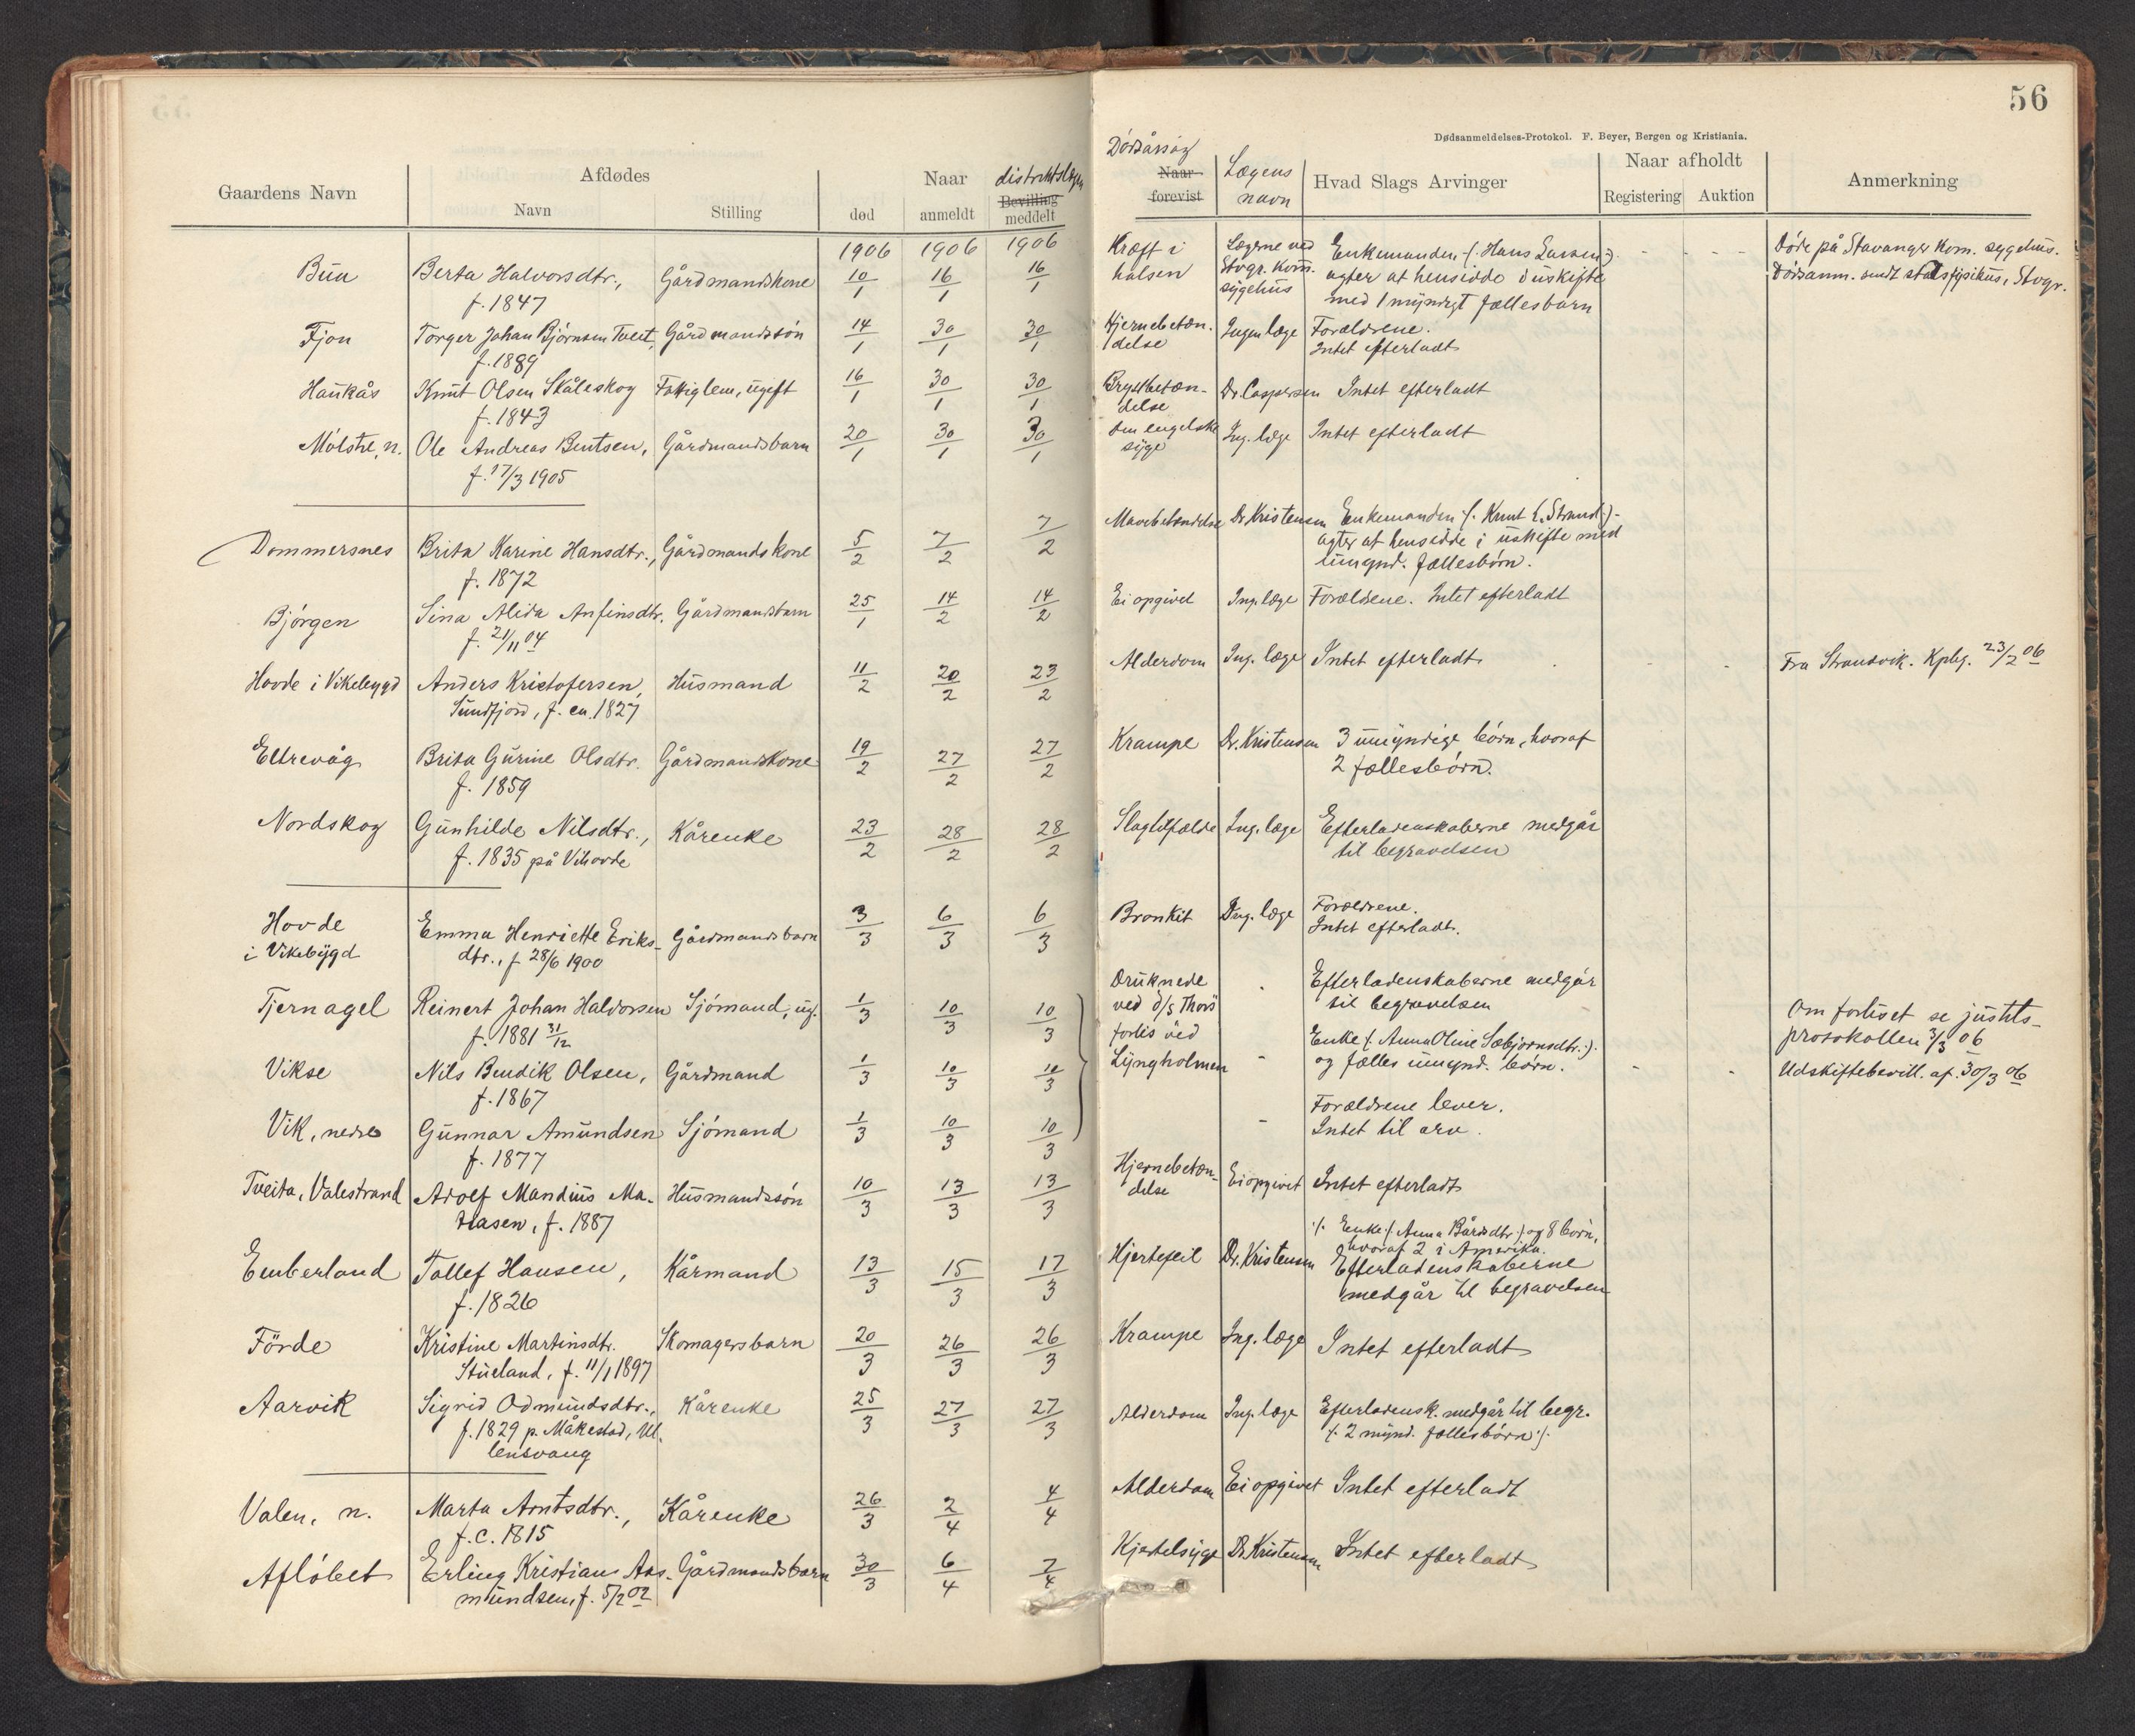 56
Dødsanmeldelses-Protokol. F. Beyer, Bergen og Kristiania.
Gaardens Navn
Afdødes
Navn
Stilling
Naar
død
anmeldt
distriktslægen
Bevilling
meddelt
Dødsårsag
Naar
forevist
Lægens
navn
Hvad Slags Arvinger
Naar afholdt
Registering
Auktion
Anmerkning
1906 1906 1906
Bua Berta Halvorsdtr., Gårdmandskone 10/1 16/1 16/1
f. 1847
Kræft i
halsen
Lægerne ved
Stvgr. kom.
sygehus
Enkemanden (: Hans Larsen :)
agter at hensidde i uskifte
med 1 myndigt fællesbarn
Døde på Stavanger kom. sygehus.
Dødsanm. sendt stadsfysikus, Stvgr.
Fjon Torger Johan Bjørnsen Tveit, Gårdmandssøn 14/1 30/1 30/1
f. 1889
Hjernebetæn-
delse
Ingen læge
Forældrene.
Intet efterladt
Haukås Knut Olsen Skåleskog Fattiglem, ugift 16/1 30/1 30/1
f. 1843
Brystbetæn-
delse
Dr. Caspersen Intet efterladt
Mølstre, n. Ole Andreas Bentsen, Gårdmandsbarn 20/1 30/1 30/1
f. 17/3 1905
Den engelske
syge
Ing. læge Intet efterladt
Dommersnes Brita Karine Hansdtr., Gårdmandskone 5/2 7/2 7/2
f. 1872
Mavebetændelse Dr Kristensen Enkemanden (: Knut L. Strand :)
agter at hensidde i uskifte med
umynd. fællesbørn.
Bjørgen Sina Alida Anfinsdtr. Gårdmandsbarn 25/1 14/2 14/2
f. 21/11 04
Ei opgivet Ing. læge Forældrene. Intet efterladt
Hovde i Vikebygd Anders Kristofersen, Husmand 11/2 20/2 23/2
Sundfjord, f. ca. 1827
Alderdom Ing. læge Intet efterladt
Fra Strandvik. Kpbg. 23/2 06
Eltrevåg Brita Gurine Olsdtr. Gårdmandskone 19/2 27/2 27/2
f. 1859
Krampe Dr. Kristensen 3 umyndige børn, hvoraf
2 fællesbørn.
Nordskog Gunhilde Nilsdtr., Kårenke 23/2 28/2 28/2
f. 1835 på Vihovde
Slagtilfælde Ing. læge Efterladenskaberne medgår
til begravelsen
Hovde
i Vikebygd
Emma Henriette Eriks- Gårdmandsbarn 3/3 6/3 6/3
dtr., f 28/6 1900
Bronkit Ing. læge Forældrene.
Intet efterladt.
Tjernagel Reinert Johan Haldorsen Sjømand, ug. 1/3 10/3 10/3
f. 1881 31/12
Druknede
ved d/s Thors
forlis ved
Lyngholmen
Efterladenskaberne medgår
til begravelsen
Om forliset se justits-
protokollen 3/3 06
Vikse Nils Bendik Olsen, Gårdmand 1/3 10/3 10/3
f. 1867
Enke (: Anna Oline Sæbjørnsdtr. :)
og fælles umynd. børn.
Udskiftebevill. af 30/3 06
Vik, nedre Gunnar Amundsen Sjømand 1/3 10/3 10/3
f. 1877
Forældrene lever.
Intet til arv.
Tveita, Valestrand Adolf Mandius Ma- Husmandssøn 10/3 13/3 13/3
tiasen, f. 1887
Hjernebetæn-
delse
Ei opgivet Intet efterladt
Emberland Tollef Hansen, Kårmand 13/3 15/3 17/3
f. 1826
Hjertefeil Dr. Kristensen
Enke (: Anna Bårdsdtr :) og 8 børn,
hvoraf 2 i Amerika.
Efterladenskaberne
medgår til begravelsen
Förde Kristine Martinsdtr. Skomagersbarn 20/3 26/3 26/3
Stueland, f. 11/1 1897
Krampe Ing. læge Intet efterladt
Aarvik Sigrid Odmundsdtr., Kårenke 25/3 27/3 27/3
f. 1829 p. Måkestad, Ul-
lensvang
Alderdom Ing. læge Efterladensk. medgår til begr.
(: 2 mynd. fællesbørn :)
Valen, n. Marta Arntsdtr., Kårenke 26/3 2/4 4/4
f. c. 1815
Alderdom Ei opgivet Intet efterladt
Afløbet Erling Kristian Aas- Gårdmandsbarn 30/3 6/4 7/4
mundsen, f. 5/2 02
Kjertelsyge Dr. Kristensen Intet efterladt